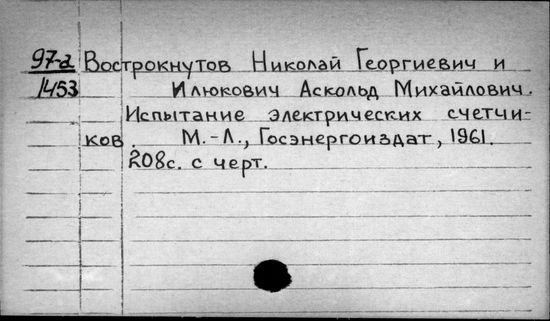 97-а Вострокнутов Николай Георгиевич и
1453 Илюкович Аскольд Михайлович.
Испытание электрических счетчи-
ков. М.-Л., Госэнергоиздат, 1961.
208с. с черт.